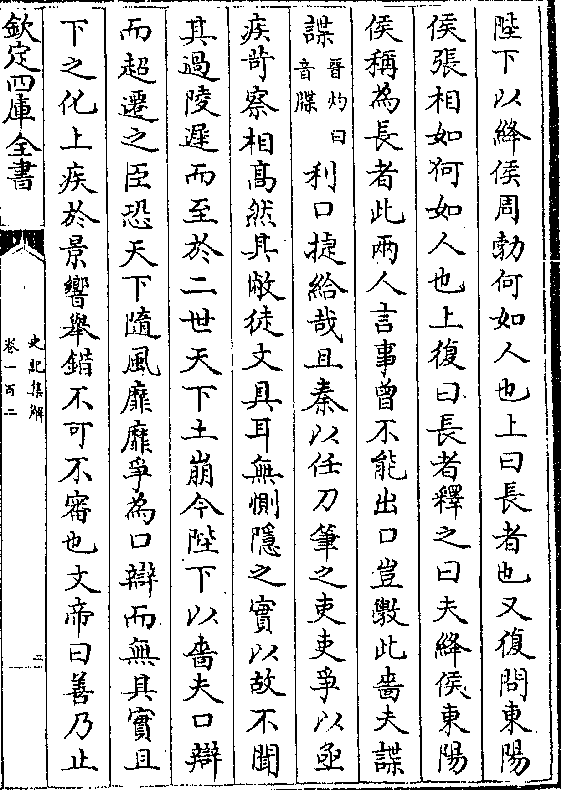 陛下以絳侯周勃何如人也上曰長者也又復問東陽
侯張相如何如人也上復曰長者釋之曰夫絳侯東陽
侯稱為長者此兩人言事曾不能出口豈斆此嗇夫諜
諜晉灼曰音牒利口捷給哉且秦以任刀筆之吏吏爭以亟
疾苛察相髙然其敝徒文具耳無惻隱之實以故不聞
其過陵遲而至於二世天下土崩今陛下以嗇夫口辯
而超遷之臣恐天下隨風靡靡爭為口辯而無其實且
下之化上疾於景響舉錯不可不審也文帝曰善乃止
欽定四庫全書
史記集解
卷一百二
二